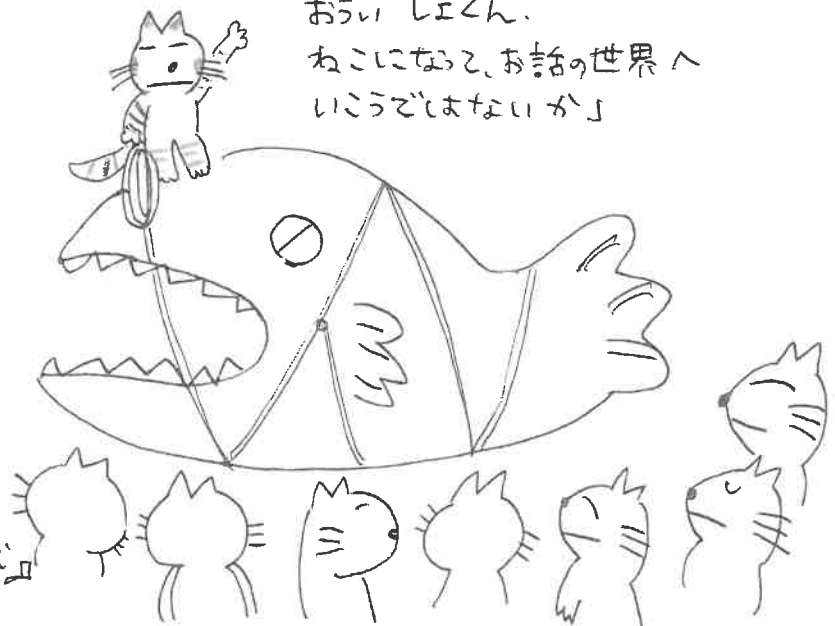 おうい しょくん.
ねこになって、お話の世界へ
いこうではないか」